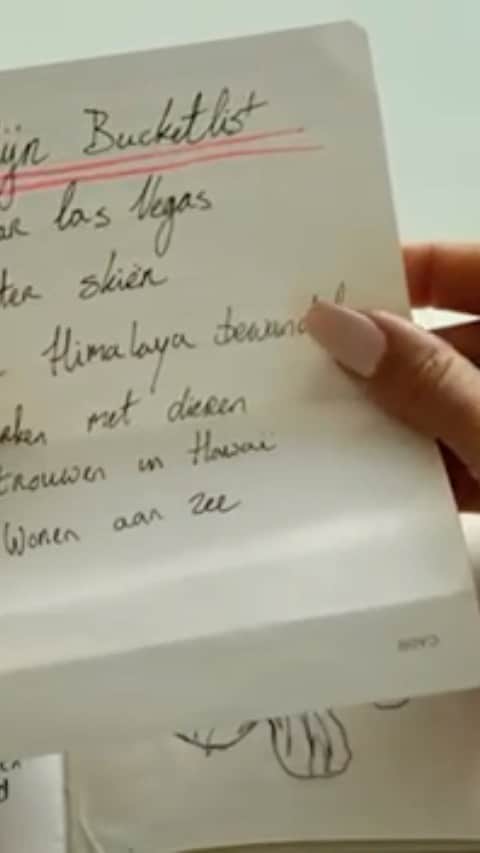 ijn Bucketlist
ar las Vegas
ter skiën
Himalaya bewond
rken met dieren
trouwen in Hawaï
Wonen aan zee